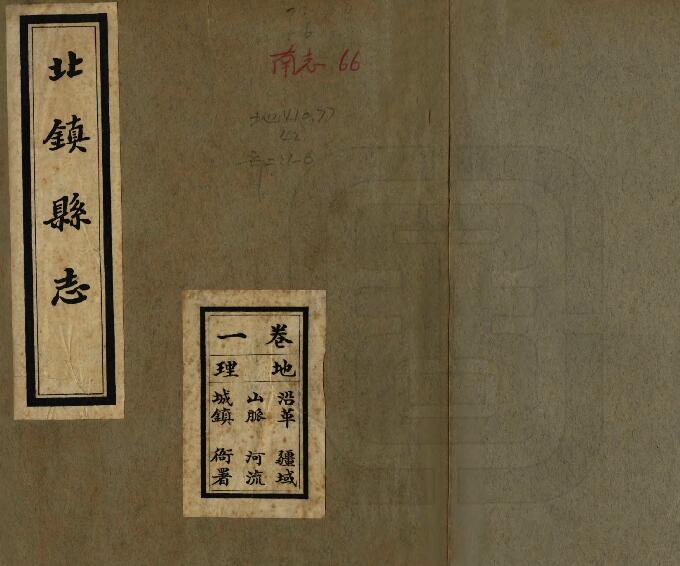 北鎮縣志
南志 66
卷一
地理
沿革 疆域
山脈 河流
城鎮 衙署